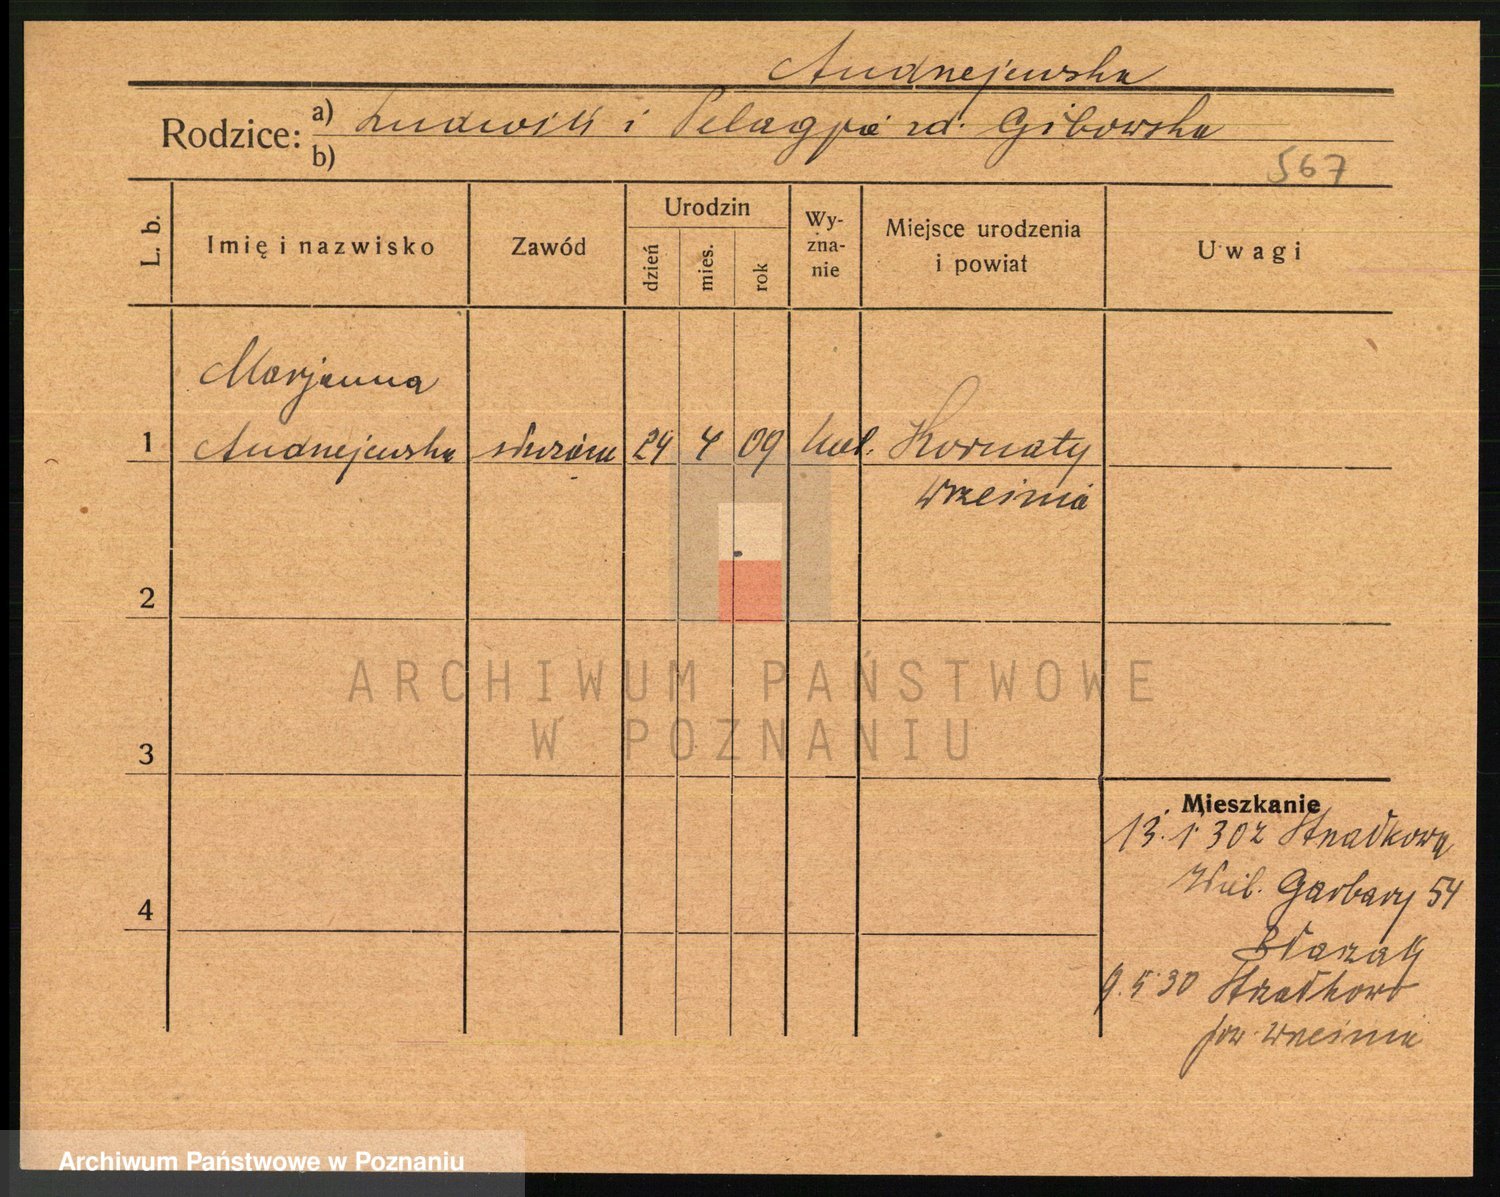 Andrzejewska
Rodzice: a) Ludwik i Pelagja zd. Gibowska
b)
567
L. b. Imię i nazwisko Zawód Urodzin dzień mies. rok Wyznanie Miejsce urodzenia i powiat Uwagi
Marjanna
1 Andrzejewska służąca 24 4 09 kat. Kornaty
Września
2
ARCHIWUM PAŃSTWOWE
W POZNANIU
3
Mieszkanie
13.1.30 z Strzałkowa
4
Garbary 54
Błaszak
9.5.30 Strzałkowo
pow. Września
Archiwum Państwowe w Poznaniu